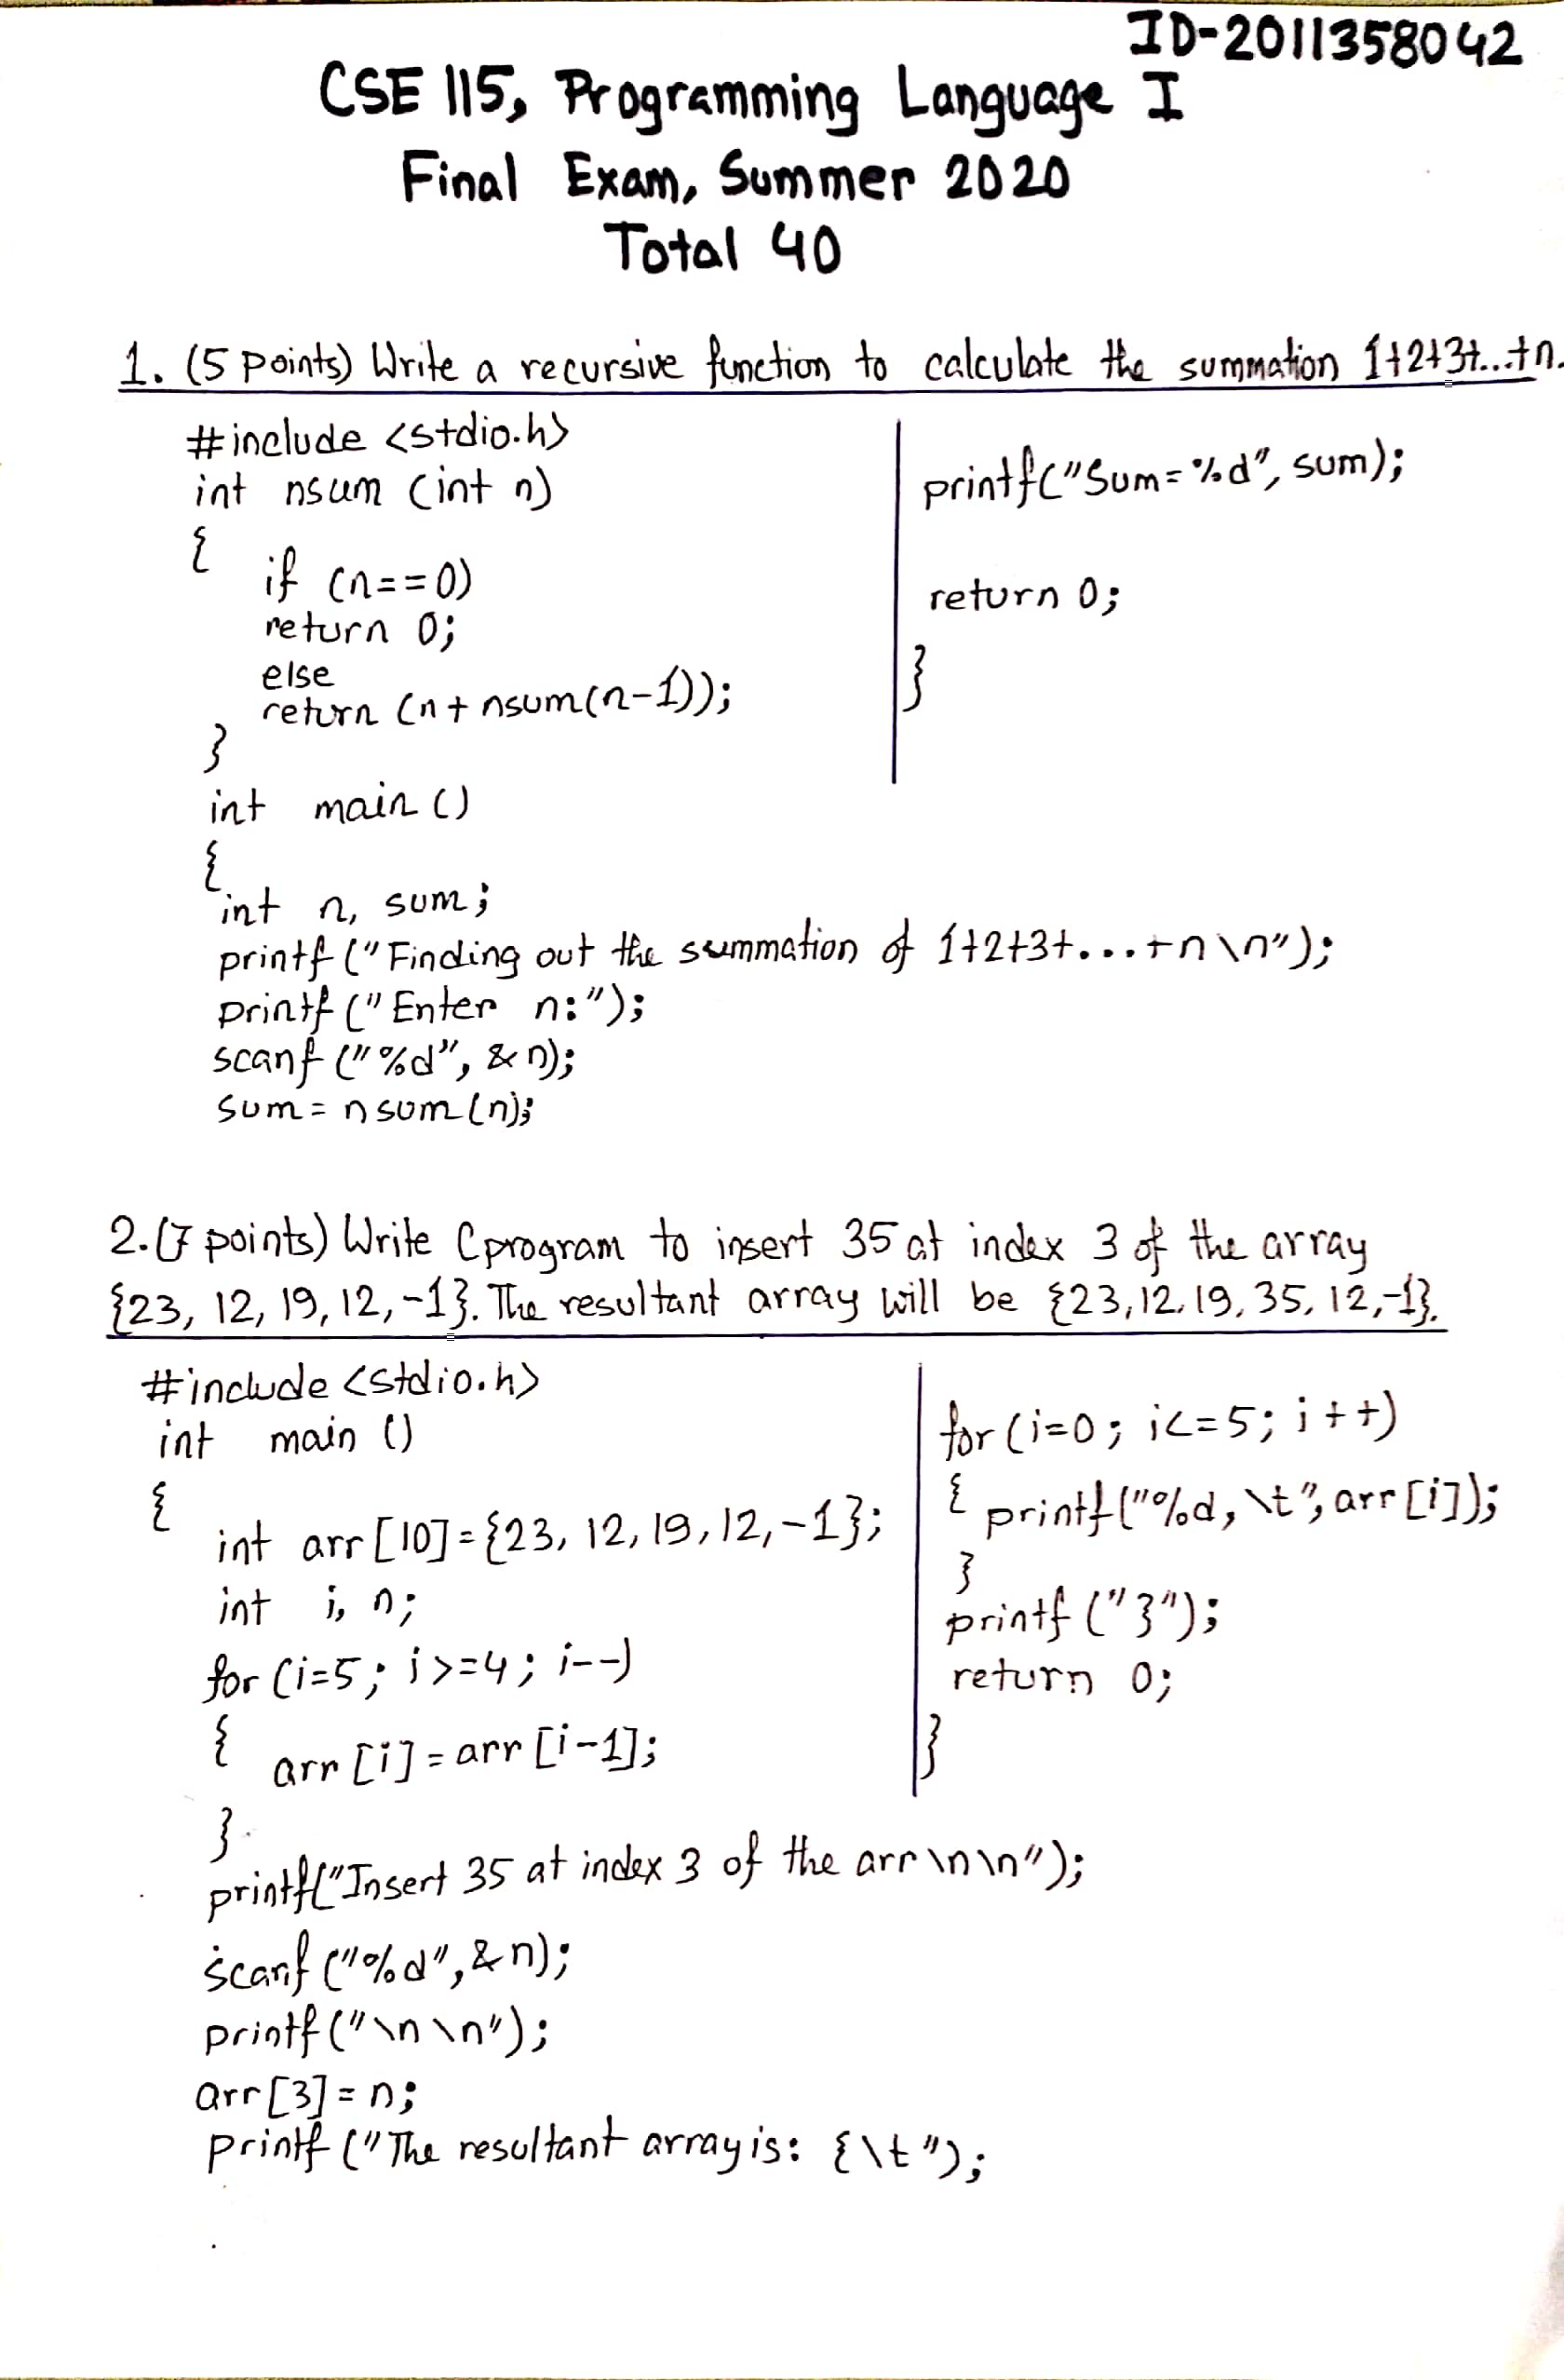 ID-2011358042
CSE 115, Programming Language I
Final Exam, Summer 2020
Total 40
1. (5 points) Write a recursive function to calculate the summation 1+2+3+...+n.
#include <stdio.h>
int nsum (int n)
{
if (n==0)
return 0;
else
return (n+nsum(n-1));
}
int main ()
{
int n, sum;
printf ("Finding out the summation of 1+2+3+...+n\n");
printf ("Enter n:");
scanf ("%d", &n);
sum = nsum(n);
printf("Sum=%d", sum);
return 0;
}
2. (7 points) Write C program to insert 35 at index 3 of the array
{23, 12, 19, 12, -1}. The resultant array will be {23, 12, 19, 35, 12, -1}.
#include <stdio.h>
int main ()
{
int arr [10] = {23, 12, 19, 12, -1};
int i, n;
for (i=5; i>=4; i--)
{
arr [i] = arr [i-1];
}
printf("Insert 35 at index 3 of the arr\n\n");
scanf ("%d", &n);
printf ("\n\n");
arr [3] = n;
printf ("The resultant array is: {\t");
for (i=0; i<=5; i++)
{ printf("%d, \t", arr [i]);
}
printf ("}");
return 0;
}